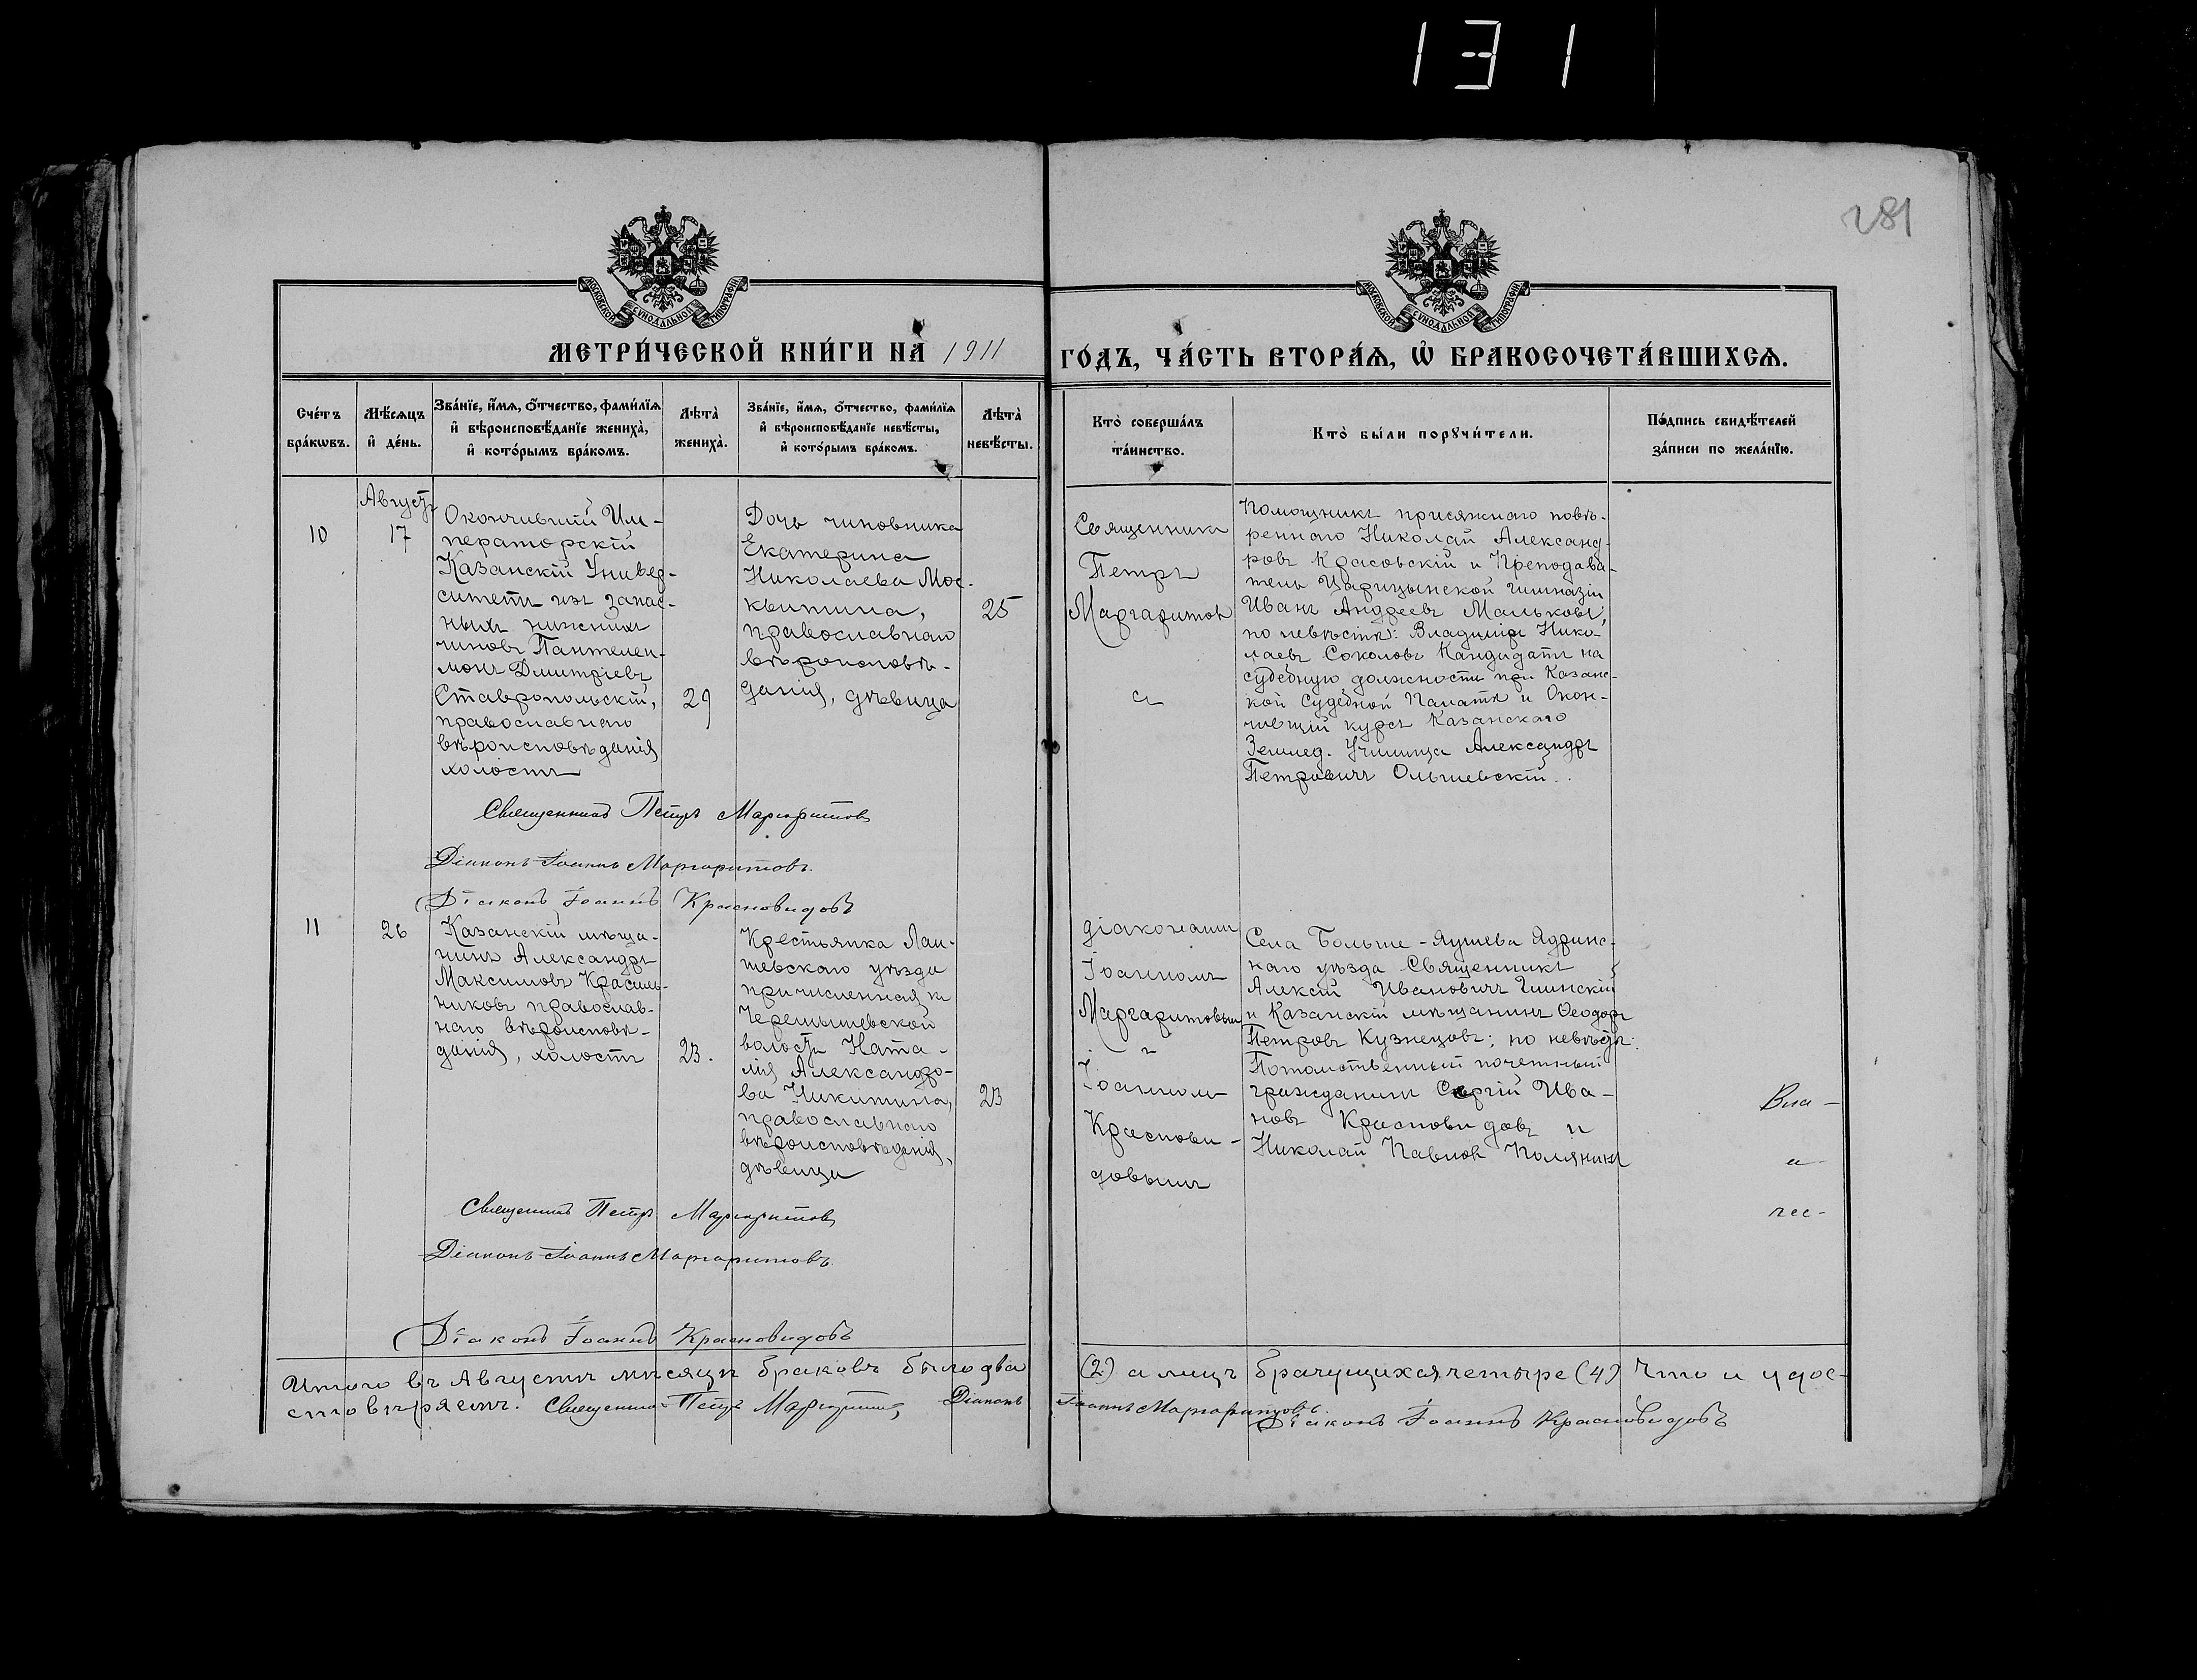 131
281
МОСКОВСКОЙ СѴНОДАЛЬНОЙ ТИПОГРАФІИ
МОСКОВСКОЙ СѴНОДАЛЬНОЙ ТИПОГРАФІИ
МЕТРИ́ЧЕСКОЙ КНИ́ГИ НА̀ 1911
ГО́ДЪ, ЧА́СТЬ ВТОРА́Ѧ, Ѡ҆ БРАКОСОЧЕТА́ВШИХСѦ.
Сче́тъ
бра́кѡвъ.
Мѣ́сѧцъ
и҆ де́нь.
Зва́нїе, и҆́мѧ, ѻ҆́тчество, фами́лїѧ
и҆ вѣроисповѣ́данїе жениха̀,
и҆ кото́рымъ бра́комъ.
Лѣ́та̀
жениха̀.
Зва́нїе, и҆́мѧ, ѻ҆́тчество, фами́лїѧ
и҆ вѣроисповѣ́данїе невѣ́сты,
и҆ кото́рымъ бра́комъ.
Лѣ́та̀
невѣ́сты.
Кто̀ соверша́лъ
та́инство.
Кто̀ бы́ли порꙋчи́тели.
По́дпись свидѣ́телей
за́писи по жела́нїю.
Августъ
10
17
Окончившій Им-
ператорскій
Казанскій Универ-
ситетъ изъ запас-
ныхъ нижнихъ
чиновъ Пантелеи-
монъ Дмитріевъ
Ставропольскій,
православнаго
вѣроисповѣданія
холостъ
29
Дочь чиновника
Екатерина
Николаева Мос-
квитина,
православнаго
вѣроисповѣ-
данія, дѣвица
25
Священникъ
Петръ
Маргаритовъ
съ
Помощникъ присяжнаго повѣ-
реннаго Николай Александ-
ровъ Красовскій и Преподава-
тель Царицынской гимназіи
Иванъ Андреевъ Мальковъ,
по невѣстѣ: Владиміръ Нико-
лаевъ Соколовъ Кандидатъ на
судебную должность при Казанс-
кой Судебной Палатѣ и Окон-
чившій курсъ Казанскаго
Землед. Училища Александръ
Петровичъ Ольшевскій.
Священникъ Петръ Маргаритовъ
Діаконъ Іоаннъ Маргаритовъ.
Діаконъ Іоаннъ Красновидовъ
11
26
Казанскій мѣща-
нинъ Александръ
Максимовъ Красиль-
никовъ православ-
наго вѣроисповѣ-
данія, холостъ
23.
Крестьянка Лаи-
шевскаго уѣзда
причисленная къ
Черемышевской
волости Ната-
лія Александро-
ва Никитина,
православнаго
вѣроисповѣданія,
дѣвица
23
діаконами
Іоанномъ
Маргаритовымъ
и
Іоанномъ
Краснови-
довымъ
Села Больше-Яушева Ядринс-
каго уѣзда Священникъ
Алексій Ивановичъ Глинскій
и Казанскій мѣщанинъ Ѳеодоръ
Петровъ Кузнецовъ; по невѣстѣ:
Потомственный почетный
гражданинъ Сергій Ива-
новъ Красновидовъ и
Николай Павловъ
Священникъ Петръ Маргаритовъ
Діаконъ Іоаннъ Маргаритовъ.
Діаконъ Іоаннъ Красновидовъ
Итого въ Августѣ мѣсяцѣ браковъ было два (2) а лицъ брачущихся четыре (4) Что и удос-
товѣряемъ. Священникъ Петръ Маргаритовъ Діаконъ Іоаннъ Маргаритовъ.
Діаконъ Іоаннъ Красновидовъ